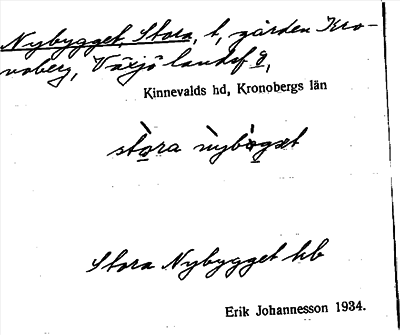 Nybygget, Stora, t, gården Kro-
noberg, Växjö landsf g,
Kinnevalds hd, Kronobergs län
stora nybøgət
Stora Nybygget hb
Erik Johannesson 1934.